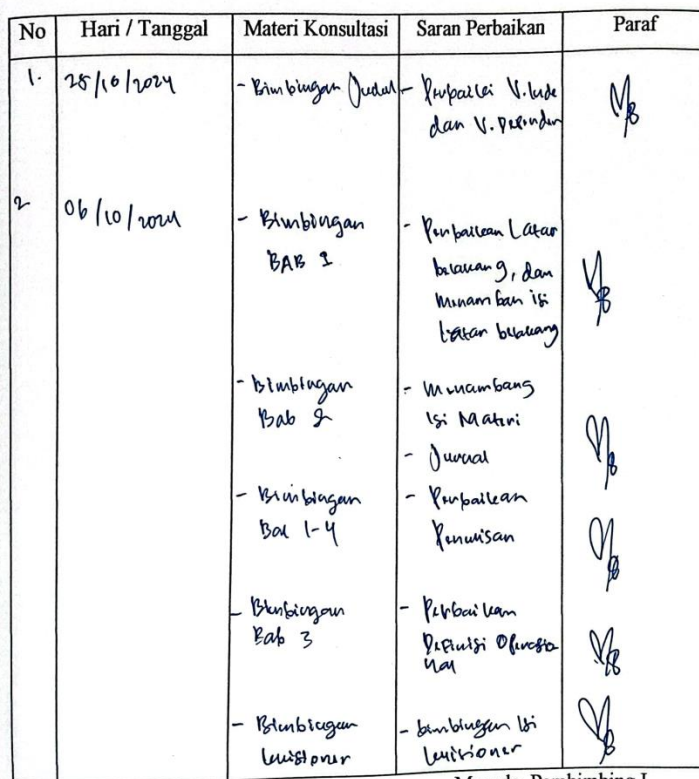 No Hari / Tanggal Materi Konsultasi Saran Perbaikan Paraf
1. 28/10/2024 - Bimbingan Judul - Perbaiki V. Inde
dan V. Dependen
2 06/10/2024 - Bimbingan - Perbaikan Latar
BAB 1 belakang, dan
menamban isi
Latar belakang
- Bimbingan - Menambang
Bab 2 Isi Materi
- Jurnal
- Bimbingan - Perbaikan
Bab 1-4 Penulisan
- Bimbingan - Perbaikan
Bab 3 Definisi Operasio
nal
- Bimbingan - bimbingan Isi
kuisioner kuisioner